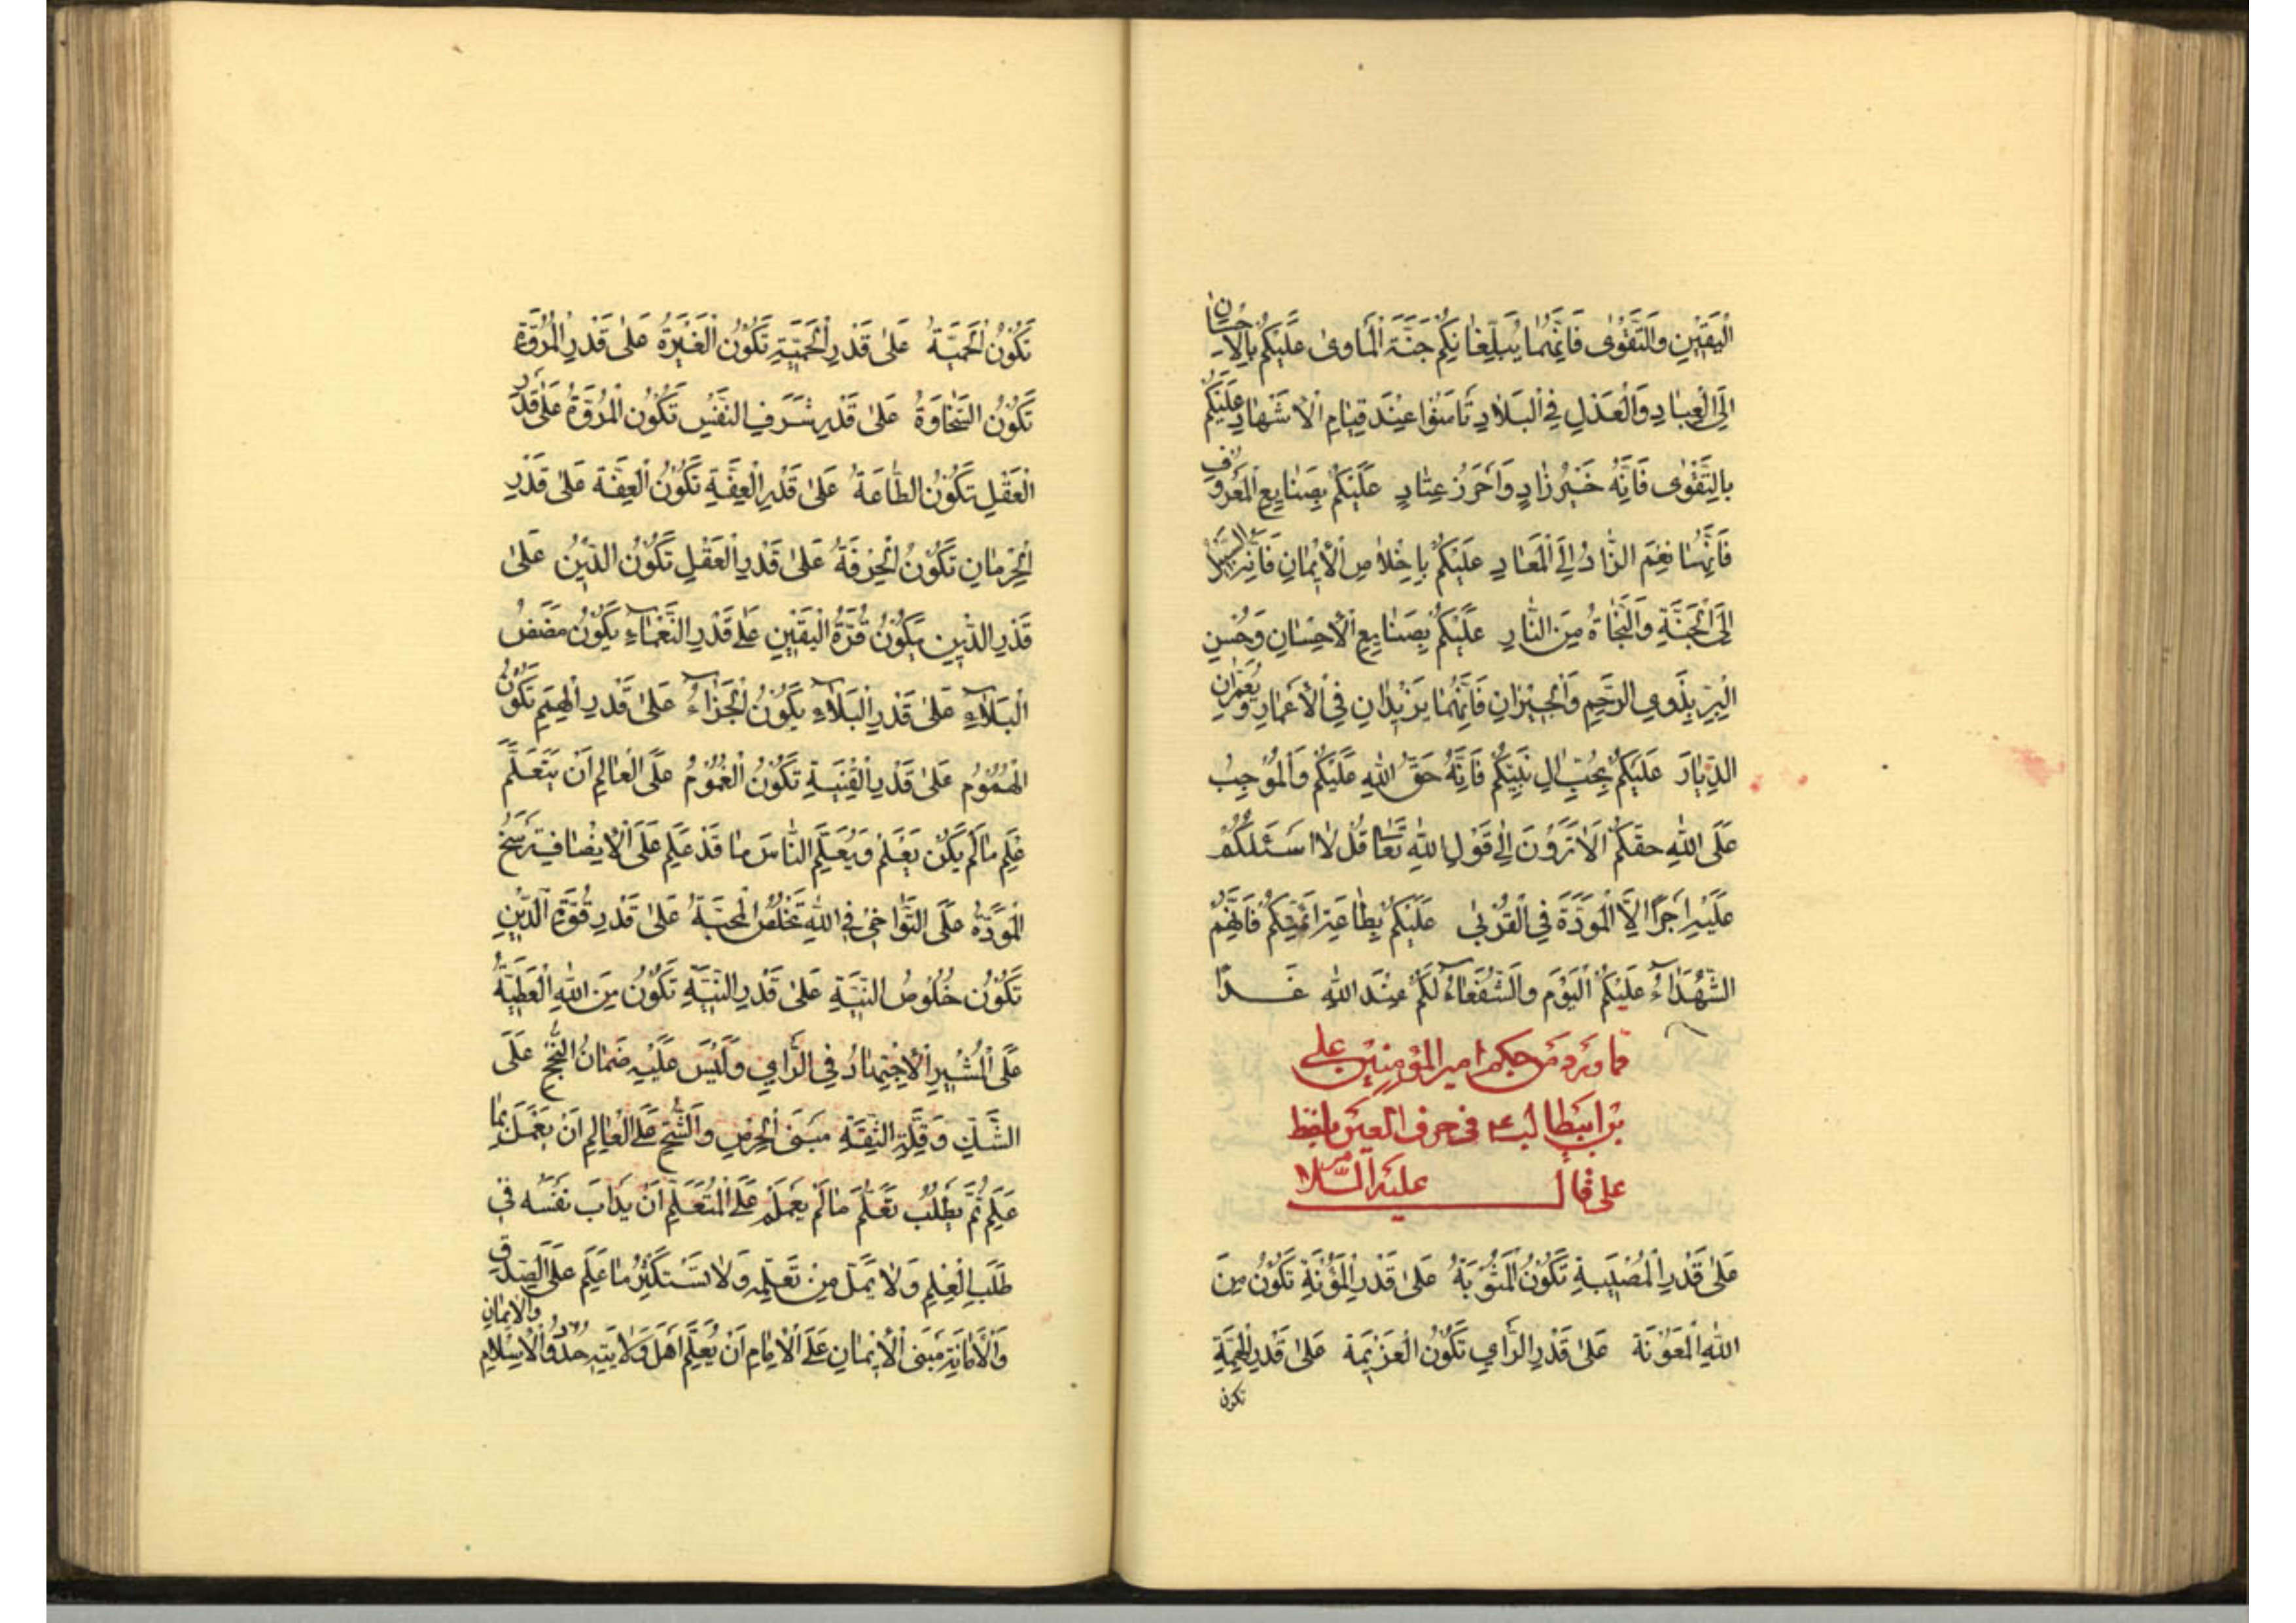 الْيَقِينِ وَالتَّقْوٰى فَاِنَّهُمَا يُبَلِّغَانِكُمْ جَنَّةَ الْمَاوىٰ عَلَيْكُمْ بِالْاِحْسَانِ
اِلَى الْعِبَادِ وَالْعَدْلِ فِي الْبَلَادِ تَامَنُوا عِنْدَ قِيَامِ الْاَشْهَادِ عَلَيْكُمْ
بِالتَّقْوٰى فَاِنَّهُ خَيْرُ زَادٍ وَاَحْرَزُ عِتَادٍ عَلَيْكُمْ بِصَنَايِعِ الْمَعْرُوفِ
فَاِنَّهَا نِعْمَ الزَّادُ اِلَى الْمَعَادِ عَلَيْكُمْ بِاِخْلَاصِ الْاِيْمَانِ فَاِنَّهُ السَّبِيلُ
اِلَى الْجَنَّةِ وَالنَّجَاةُ مِنَ النَّارِ عَلَيْكُمْ بِصَنَايِعِ الْاِحْسَانِ وَحُسْنِ
الْبِرِّ بِذَوِي الرَّحِمِ وَالْجِيْرَانِ فَاِنَّهُمَا يَزِيْدَانِ فِي الْاَعْمَارِ وَيُعَمِّرَانِ
الدِّيَارَ عَلَيْكُمْ بِحُبِّ اٰلِ نَبِيِّكُمْ فَاِنَّهُ حَقُّ اللهِ عَلَيْكُمْ وَالْمُوْجِبُ
عَلَى اللهِ حَقَّكُمْ اَلَا تَرَوْنَ اِلٰى قَوْلِ اللهِ تَعَالٰى قُلْ لَا اَسْئَلُكُمْ
عَلَيْهِ اَجْرًا اِلَّا الْمَوَدَّةَ فِي الْقُرْبٰى عَلَيْكُمْ بِطَاعَةِ اَئِمَّتِكُمْ فَاِنَّهُمُ
الشُّهَدَاءُ عَلَيْكُمُ الْيَوْمَ وَالشُّفَعَاءُ لَكُمْ عِنْدَ اللهِ غَدًا
مما ورد من حكم امير المؤمنين على
بن ابيطالب ع فى حرف العين بلفظ
على قال عليه السّلام
عَلىٰ قَدْرِ الْمُصِيْبَةِ تَكُوْنُ الْمَثُوْبَةُ عَلىٰ قَدْرِ الْمَؤُنَةِ تَكُوْنُ مِنَ
اللهِ الْمَعُوْنَة عَلىٰ قَدْرِ الرَّايِ تَكُوْنُ الْعَزِيْمَة عَلىٰ قَدْرِ الْهِمَّةِ
تكون
تَكُوْنُ الْحَمِيَّةُ عَلىٰ قَدْرِ الْحَمِيَّةِ تَكُوْنُ الْغَيْرَةُ عَلىٰ قَدْرِ الْمُرُوَّةِ
تَكُوْنُ السَّخَاوَةُ عَلىٰ قَدْرِ شَرَفِ النَّفْسِ تَكُوْنُ الْمُرُوَّةُ عَلىٰ قَدْرِ
الْعَقْلِ تَكُوْنُ الطَّاعَةُ عَلىٰ قَدْرِ الْعِفَّةِ تَكُوْنُ الْعِفَّة عَلىٰ قَدْرِ
الْحِرْمَانِ تَكُوْنُ الْحِرْفَةُ عَلىٰ قَدْرِ الْعَقْلِ تَكُوْنُ الدِّيْنُ عَلىٰ
قَدْرِ الدِّيْنِ يَكُوْنُ قُوَّةُ الْيَقِيْنِ عَلىٰ قَدْرِ النَّعْمَاءِ يَكُوْنُ مَضَضُ
الْبَلَاءِ عَلىٰ قَدْرِ الْبَلَاءِ يَكُوْنُ الْجَزَاءُ عَلىٰ قَدْرِ الْهِمَمِ تَكُوْنُ
الْهُمُوْمُ عَلىٰ قَدْرِ الْقِنْيَةِ تَكُوْنُ الْغُمُوْمُ عَلَى الْعَالِمِ اَنْ يَتَعَلَّمَ
عِلْمَ مَا لَمْ يَكُنْ يَعْلَمُ وَيُعَلِّمَ النَّاسَ مَا قَدْ عَلِمَ عَلَى الْاِنْصَافِ تَرْسَخُ
الْمَوَدَّةُ عَلَى التَّوَاخِيْ فِي اللهِ تَخْلُصُ الْمَحَبَّةُ عَلىٰ قَدْرِ قُوَّةِ الدِّيْنِ
تَكُوْنُ خُلُوْصُ النِّيَّةِ عَلىٰ قَدْرِ النِّيَّةِ تَكُوْنُ مِنَ اللهِ الْعَطِيَّةُ
عَلَى الْمُشِيْرِ الْاِجْتِهَادُ فِي الرَّايِ وَلَيْسَ عَلَيْهِ ضَمَانُ النُّجْحِ عَلَى
الشَّكِّ وَقِلَّةِ الثِّقَةِ مَبْنَى الْحِرْصِ وَالشُّحِّ عَلَى الْعَالِمِ اَنْ يَعْمَلَ بِمَا
عَلِمَ ثُمَّ يَطْلُبُ تَعَلُّمَ مَا لَمْ يَعْلَمْ عَلَى الْمُتَعَلِّمِ اَنْ يَدْاَبَ نَفْسَهُ فِي
طَلَبِ الْعِلْمِ وَلَا يَمَلَّ مِنْ تَعَلُّمِهِ وَلَا يَسْتَكْثِرُ مَا عَلِمَ عَلَى الصِّدْقِ
وَالْاَمَانَةِ مَبْنَى الْاِيْمَانِ عَلَى الْاِمَامِ اَنْ يُعَلِّمَ اَهْلَ وَلَايَتِهِ حُدُوْدَ الْاِسْلَامِ وَالْاِيْمَانِ